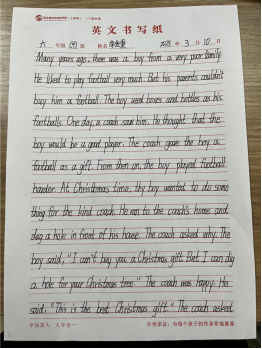 英文书写纸
六 年级 班 姓名 2023 年 3 月 10 日
Many years ago, there was a boy from a very poor family.
He liked to play football very much. But his parents couldn't
buy him a football. The boy used boxes and bottles as his
footballs. One day, a coach saw him. He thought that the
boy would be a good player. The coach gave the boy a
football as a gift. From then on, the boy played football
harder. At Christmas time, thy boy wanted to do some
thing for the kind coach. He ran to the coach's home and
dug a hole in front of his house. The coach asked why. The
boy said, "I can't buy you a Christmas gift. But I can dig
a hole for your Christmas tree." The coach was happy. He
said, "This is the best Christmas gift." The coach asked